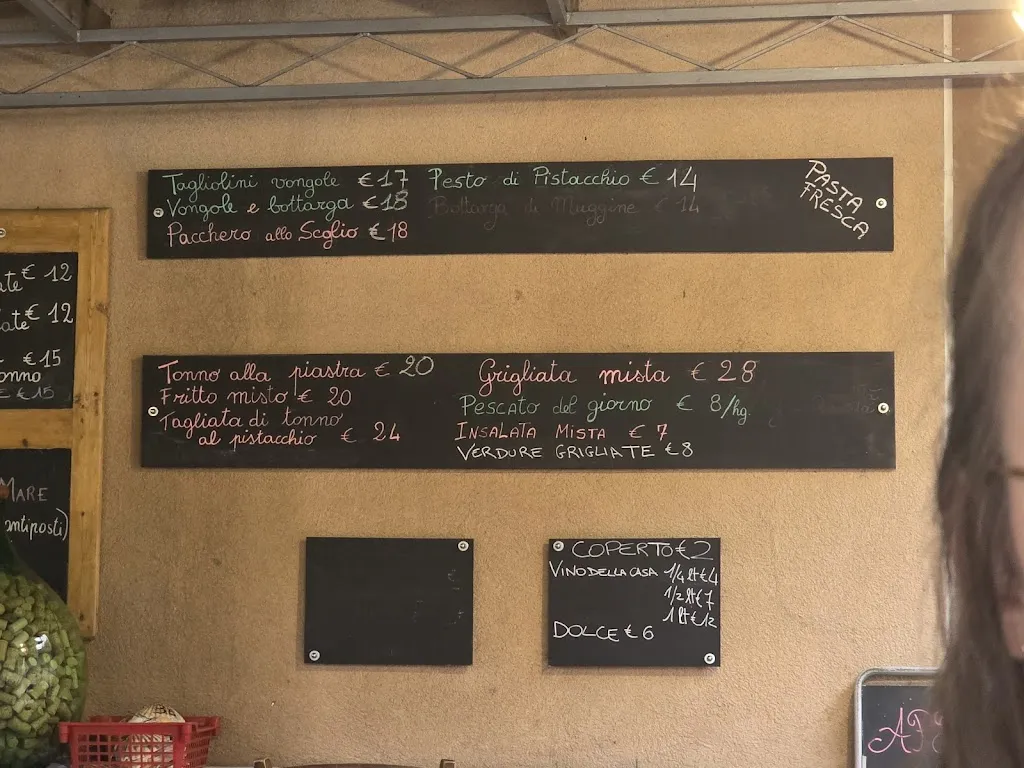 € 12
€ 12
€ 15
€ 15
MARE
antiposti)
Tagliolini vongole € 17
Vongole e bottarga € 18
Pacchero allo Scoglio € 18
Pesto di Pistacchio € 14
Bottarga di Muggine € 14
PASTA
FRESCA
Tonno alla piastra € 20
Fritto misto € 20
Tagliata di tonno
al pistacchio € 24
Grigliata mista € 28
Pescato del giorno € 8/hg.
INSALATA MISTA € 7
VERDURE GRIGLIATE € 8
COPERTO € 2
VINO DELLA CASA 1/4 lt € 4
1/2 lt € 7
1 lt € 12
DOLCE € 6